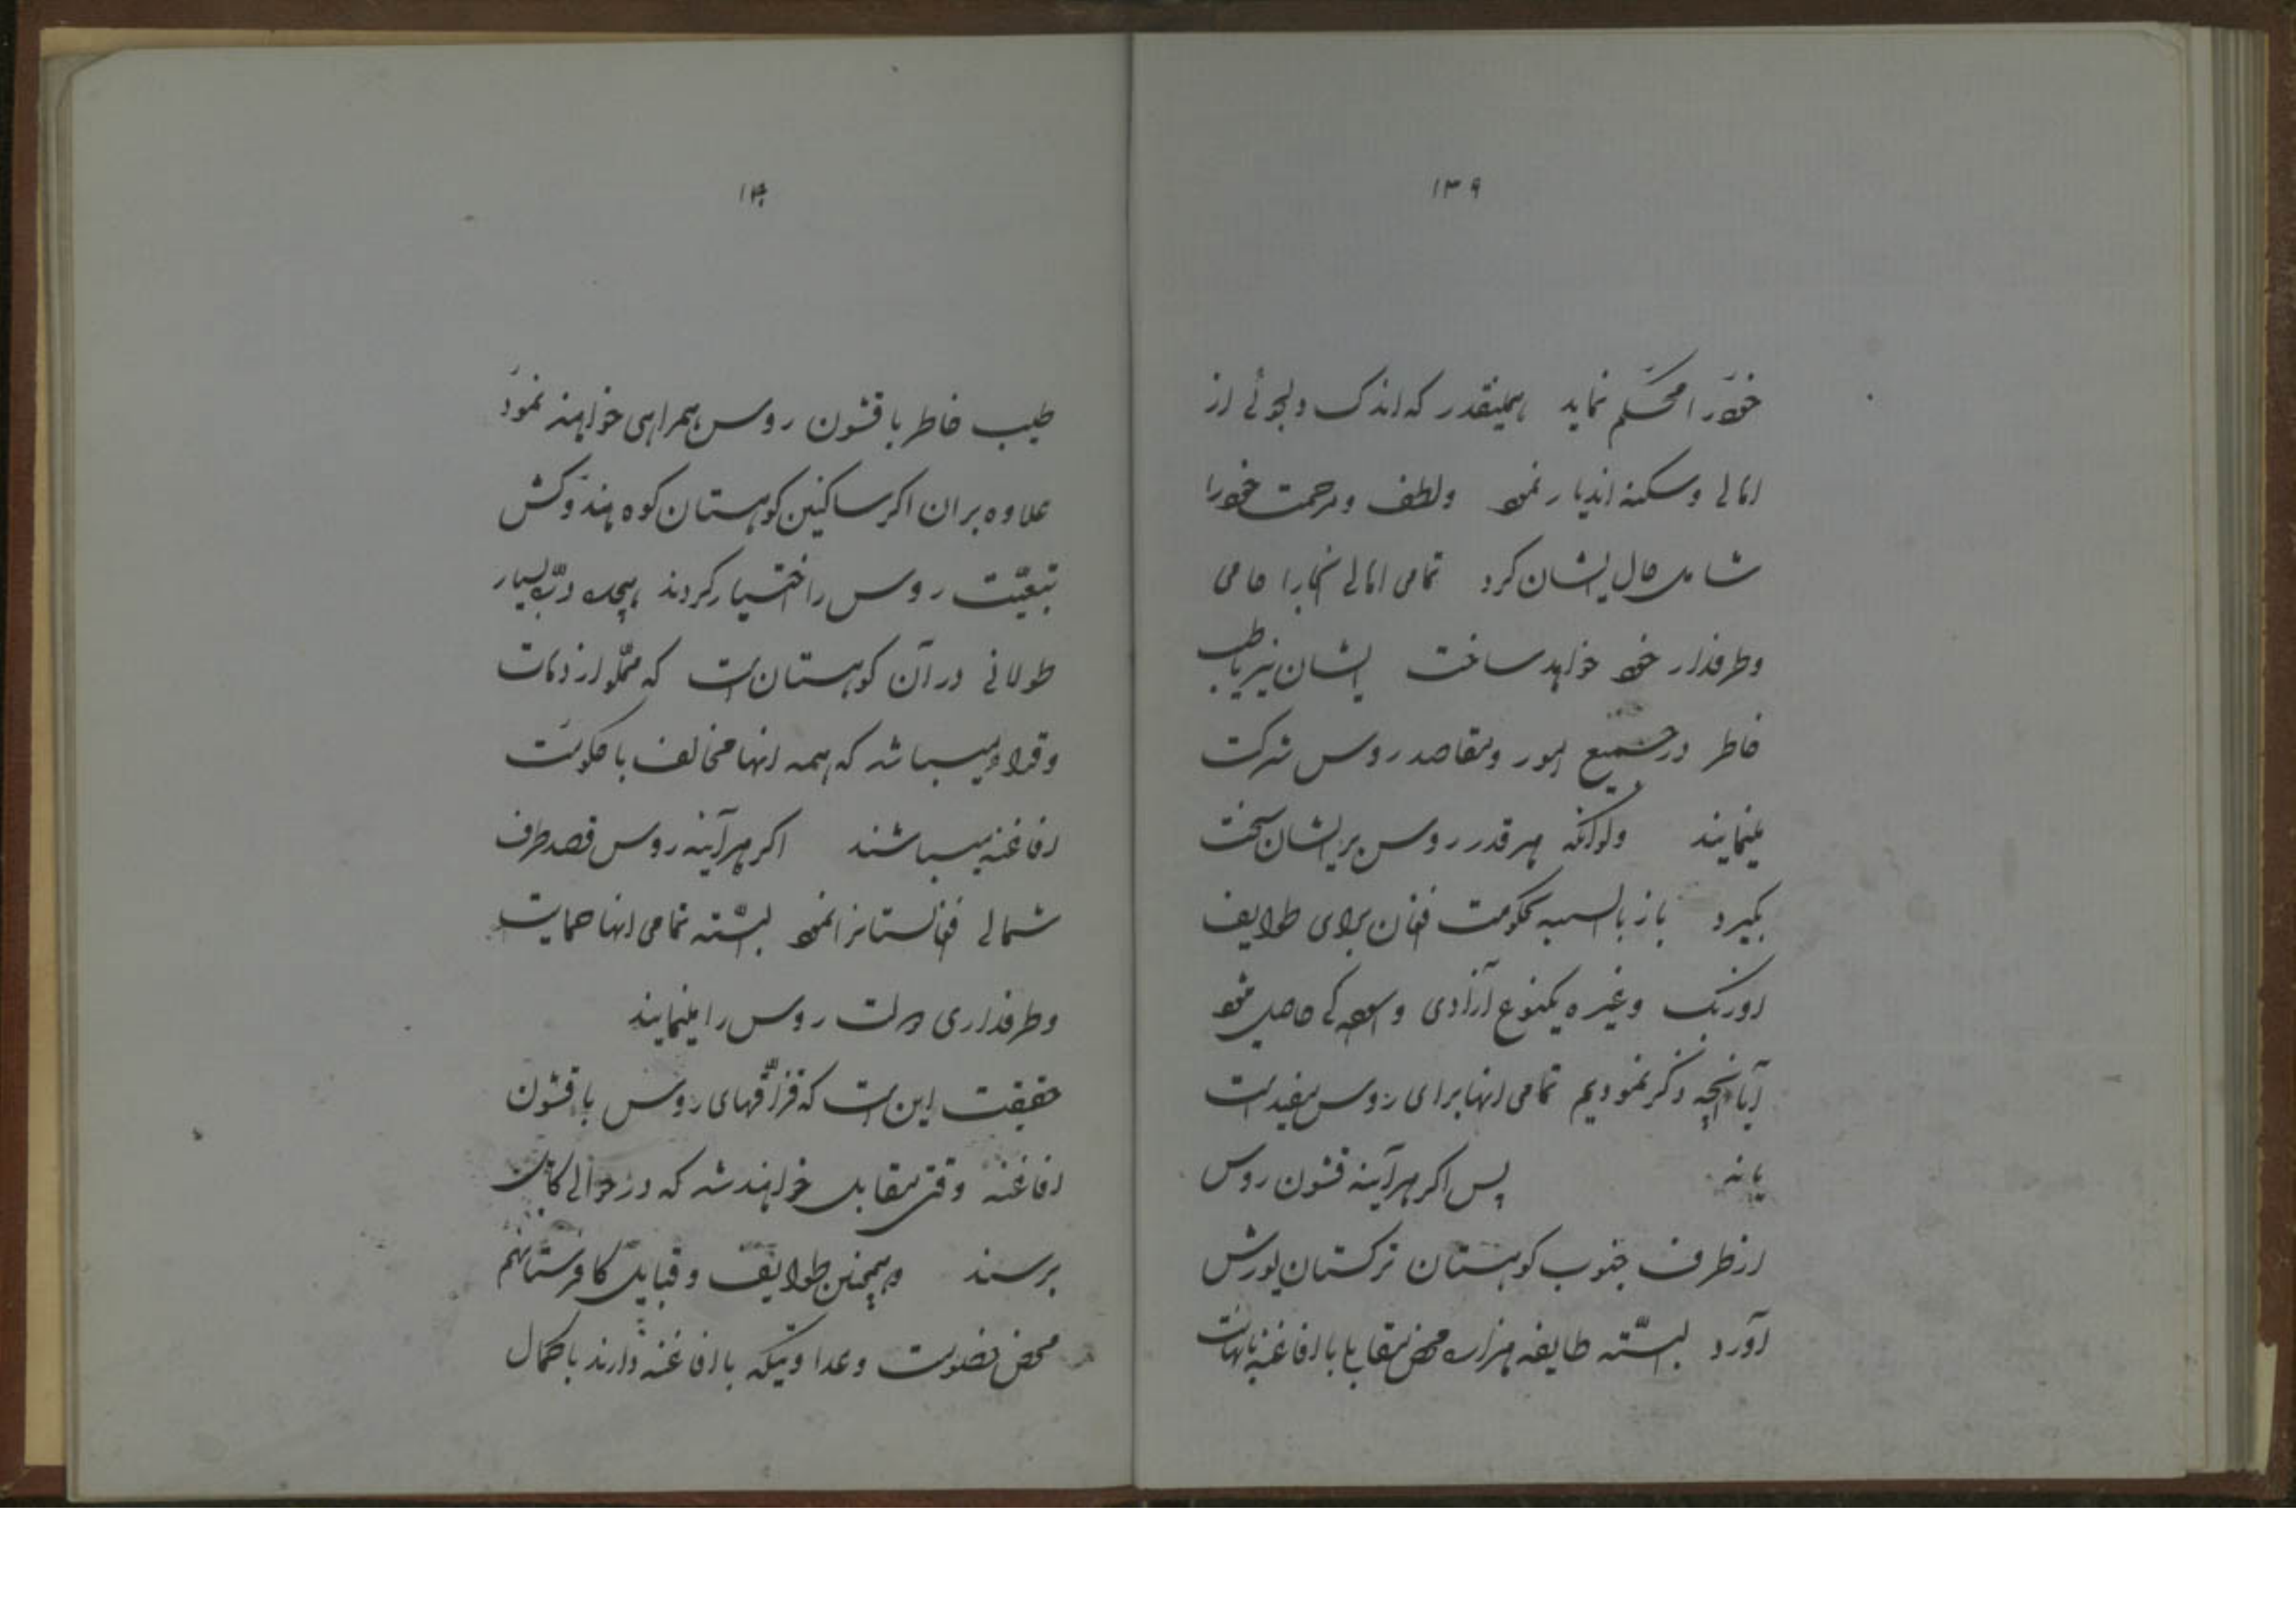 ۱۳۹
خود را محکم نماید همینقدر که اندک دلجوئی از
اهالی و سکنه اندیار نموده ولطف و مرحمت خود را
شامل حال ایشان کرد تمامی اهالی انجا را حامی
وطرفدار خود خواهد ساخت ایشان نیز با طیب
خاطر در جمیع امور و مقاصد روس شرکت
مینمایند ولو آنکه هر قدر روس بر ایشان سخت
بگیرد باز بالنسبه بحکومت افغان برای طوایف
اوزبک وغیره یکنوع آزادی و آسودگی حاصل میشود
آیا انچه ذکر نمودیم تمامی اینها برای روس مفید است
یا نه پس اگر هرآینه قشون روس
از طرف جنوب کوهستان ترکستان یورش
آورد البتّه طایفه هزاره محض مقابل با افاغنه بانهایت
۱۴۰
طیب خاطر با قشون روس همراهی خواهند نمود
علاوه بران اکر ساکنین کوهستان کوه هندوکش
تبعیّت روس را اختیار کردند هیجده درّه بسیار
طولانی در آن کوهستان است که مملّو از دهات
و قراء میباشد که همه انها مخالف با حکومت
افاغنه میباشند اکر هرآینه روس قصد طرف
شمالی افغانستانرا نمود البتّه تمامی اینها حمایت
وطرفداری دولت روس را مینمایند
حقیقت این است که قزاقهای روس با قشون
افاغنه وقتی مقابل خواهند شد که در حوالی کابل
برسند و همچنین طوایف و قبایل کافرستانهم
محض خصومت و عداوتیکه با افاغنه دارند با کمال